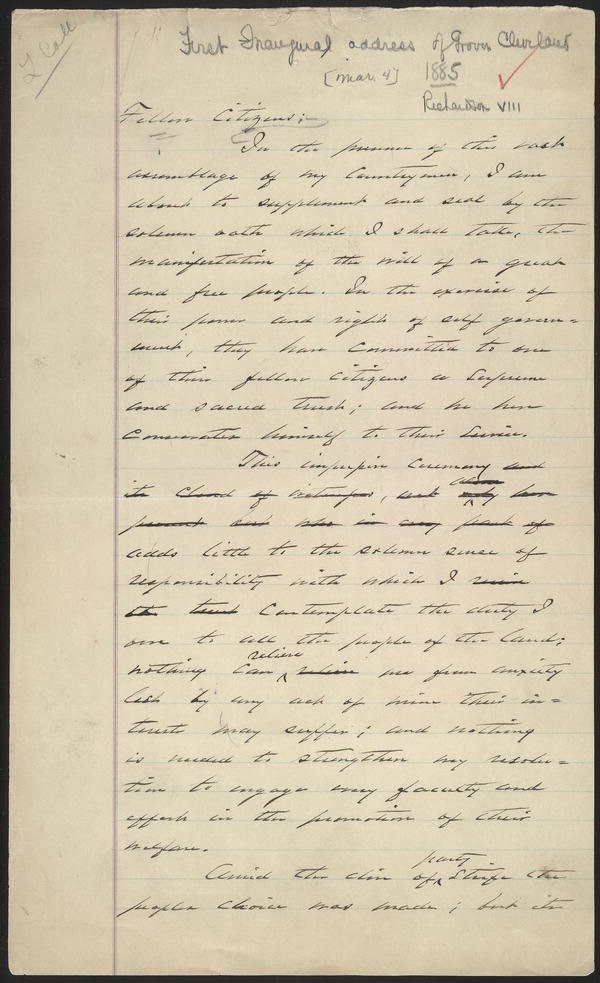 L Call
First Inaugural address of Grover Cleveland
[Mar. 4] 1885
Richardson VIII
Fellow Citizens;-
In the presence of this vast
assemblage of my Countrymen, I am
about to supplement and seal by the
solemn oath which I shall take, the
manifestation of the will of a great
and free people. In the exercise of
their power and right of self govern=
ment, they have Committed to one
of their fellow citizens a Supreme
and sacred trust; and he here
Consecrates himself to their Service.
This impressive Ceremony and
its cloud of witnesses, not alone only here
present but who in every part of
adds little to the solemn sense of
responsibility with which I
Contemplate the duty I
owe to all the people of the land;
nothing Can relieve me from anxiety
lest by any act of mine their in=
terests may suffer; and nothing
is needed to strengthen my resolu=
tion to engage every faculty and
effort in the promotion of their
welfare.
Amid the din of party Strife the
peoples choice was made; but its